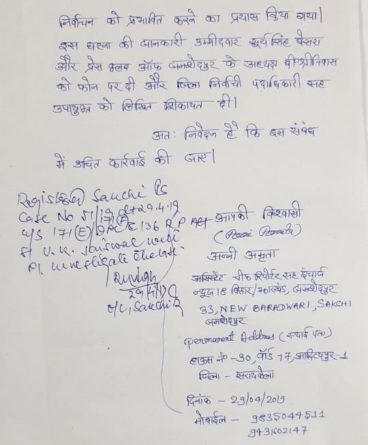 निर्वाचन को प्रभावित करने का प्रयास किया गया|
इस घटना की जानकारी उम्मीदवार सूर्य सिंह बेसरा
और प्रेस क्लब ऑफ जमशेदपुर के अध्यक्ष बी श्रीनिवास
को फोन पर दी और जिला निर्वाची पदाधिकारी सह
उपायुक्त को लिखित शिकायत दी|
अतः निवेदन है कि इस संबंध
में उचित कार्रवाई की जाए|
Registered Sakchi PS
Case No 29.4.19
U/S 171(E) IPC & 136 R P Act
V. K. Jaiswal will
Pl. investigate the case.
29/4/19
O/C, Sakchi PS
आपकी विश्वासी
अन्नी अमृता
असिस्टेंट चीफ रिपोर्टर सह
न्यूज 18 बिहार/झारखंड, जमशेदपुर
33, NEW BARADWARI, SAKCHI
जमशेदपुर
Permanent Address (स्थाई पता)
हाऊस नं - 90, वॉर्ड 17, आदित्यपुर-1
जिला - सरायकेला
दिनांक - 29/04/2019
मोबाईल - 9835044511
9431602147